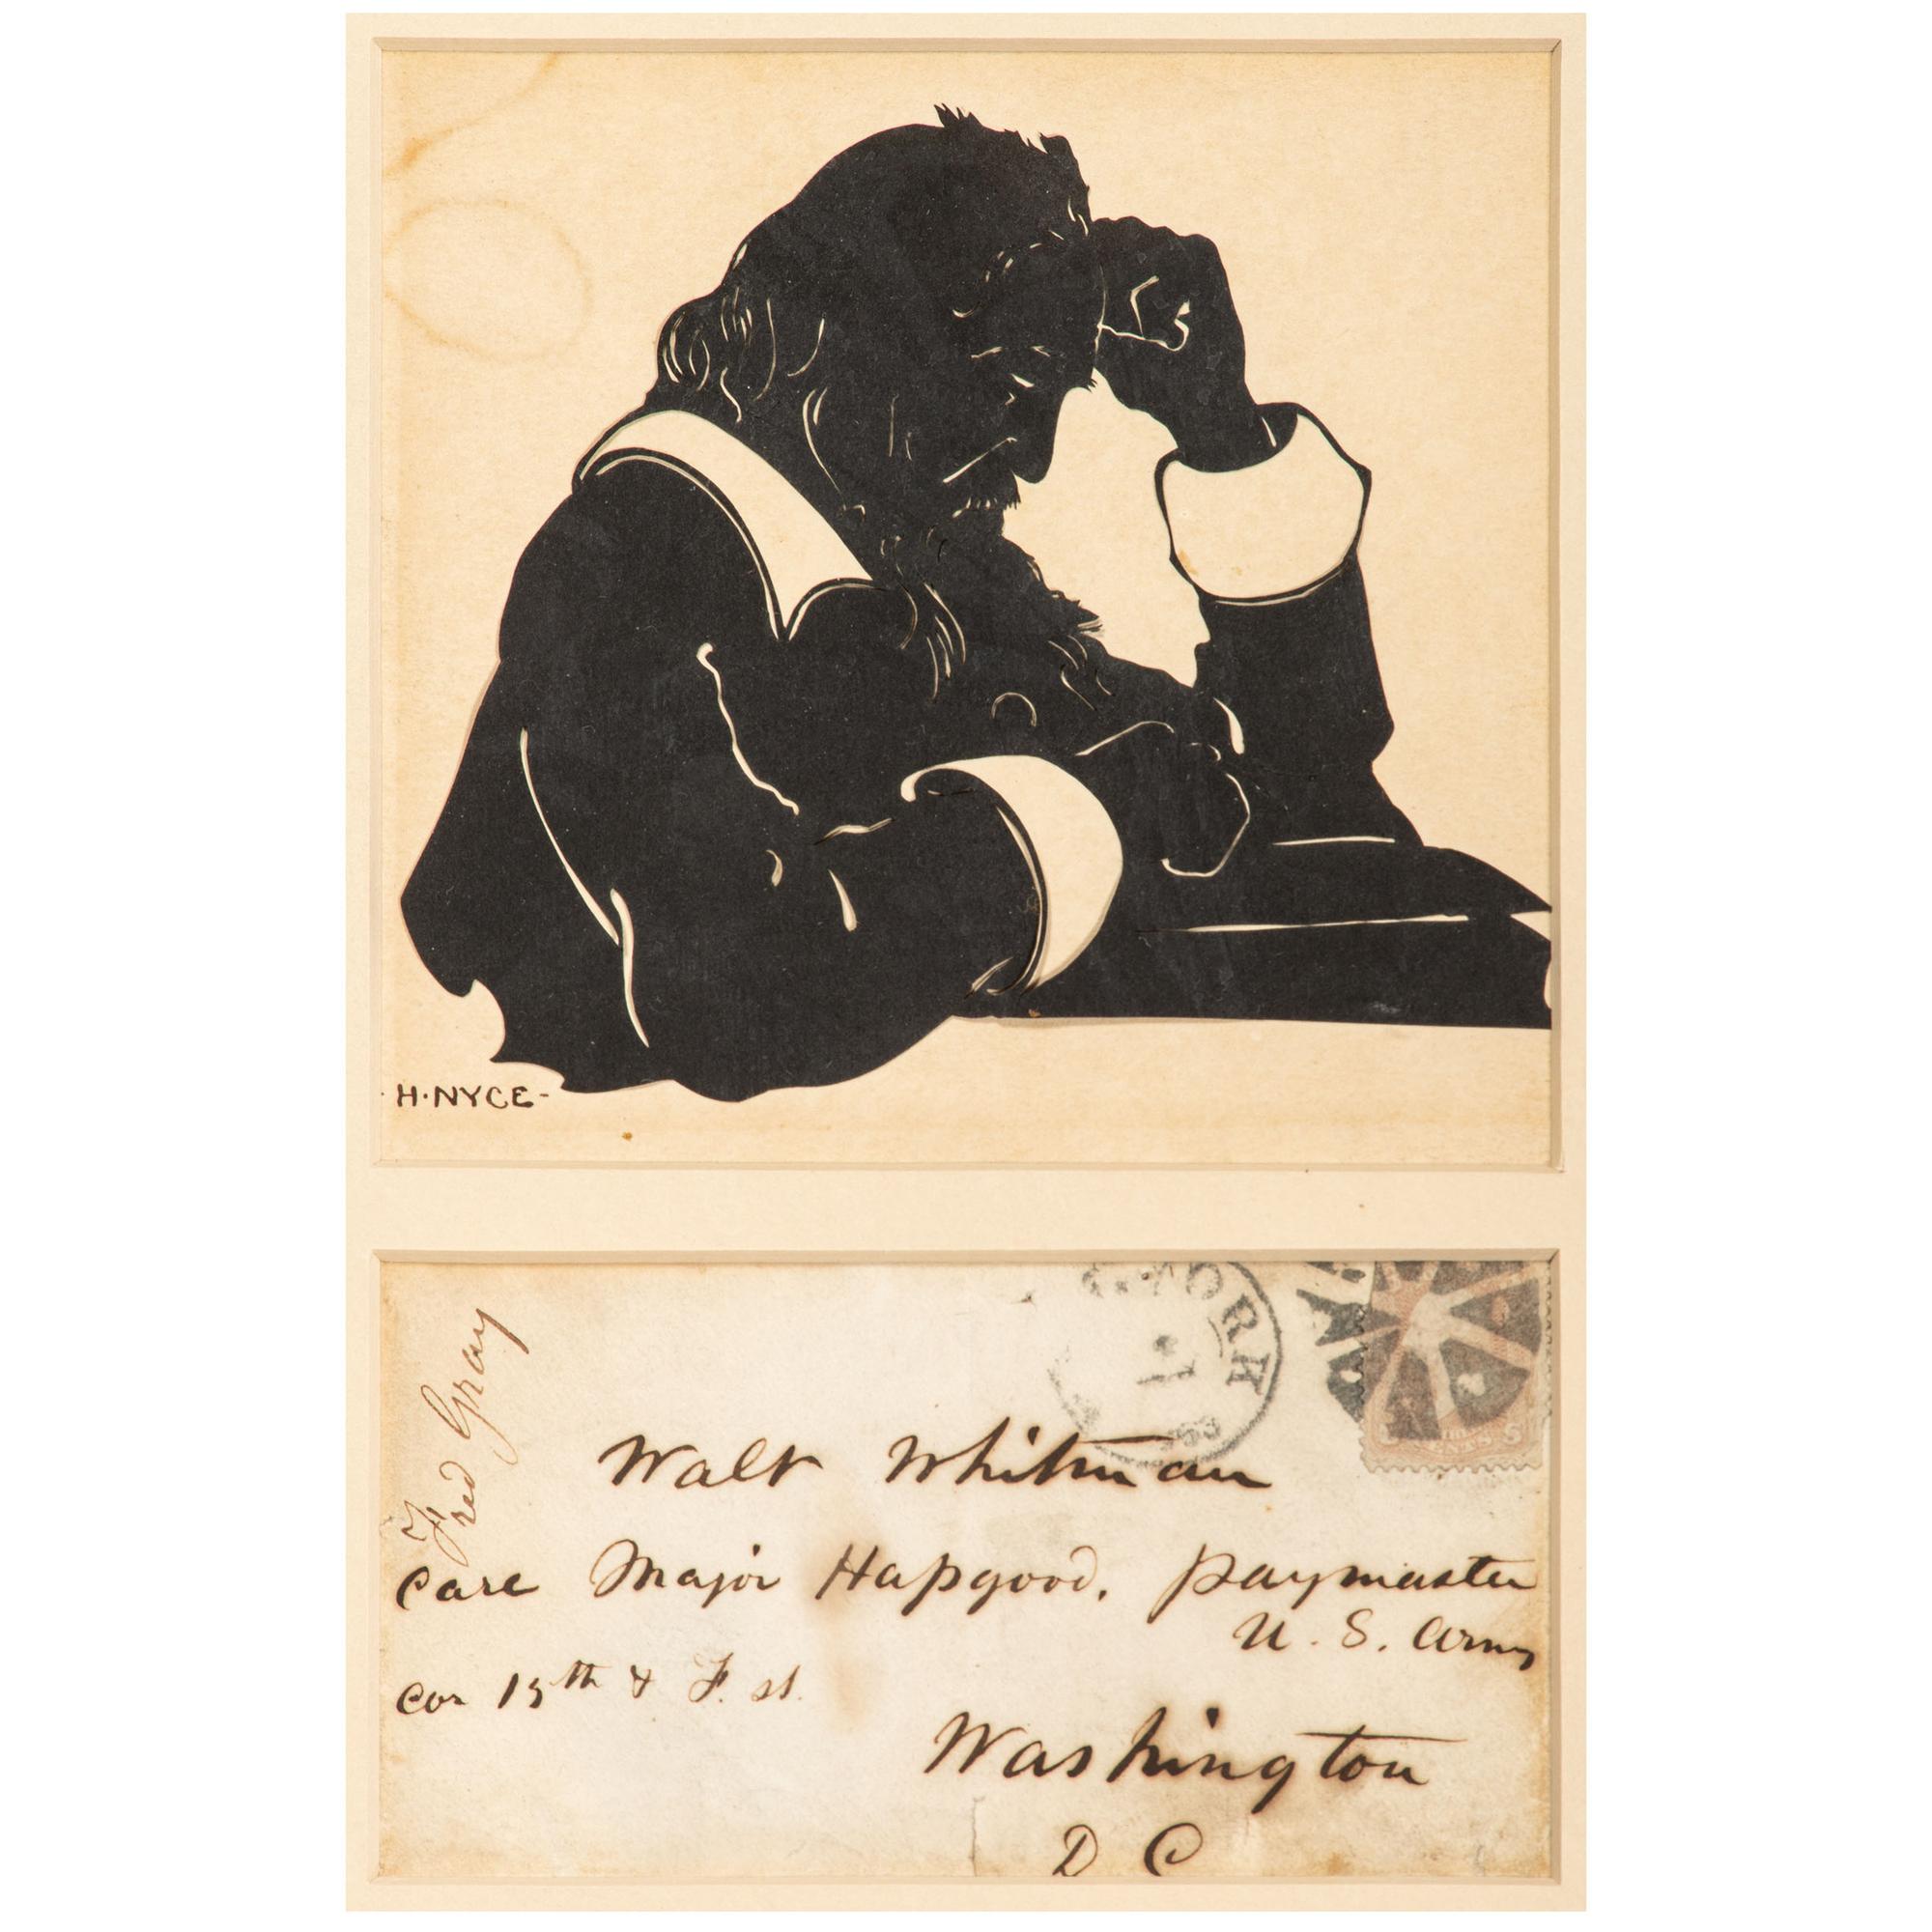 ·H·NYCE-
Fred Gray
YORK
CENTS 3
Walt Whitman
Care Major Hapgood, paymaster
U. S. Army
cor 15th & F. st.
Washington
D C